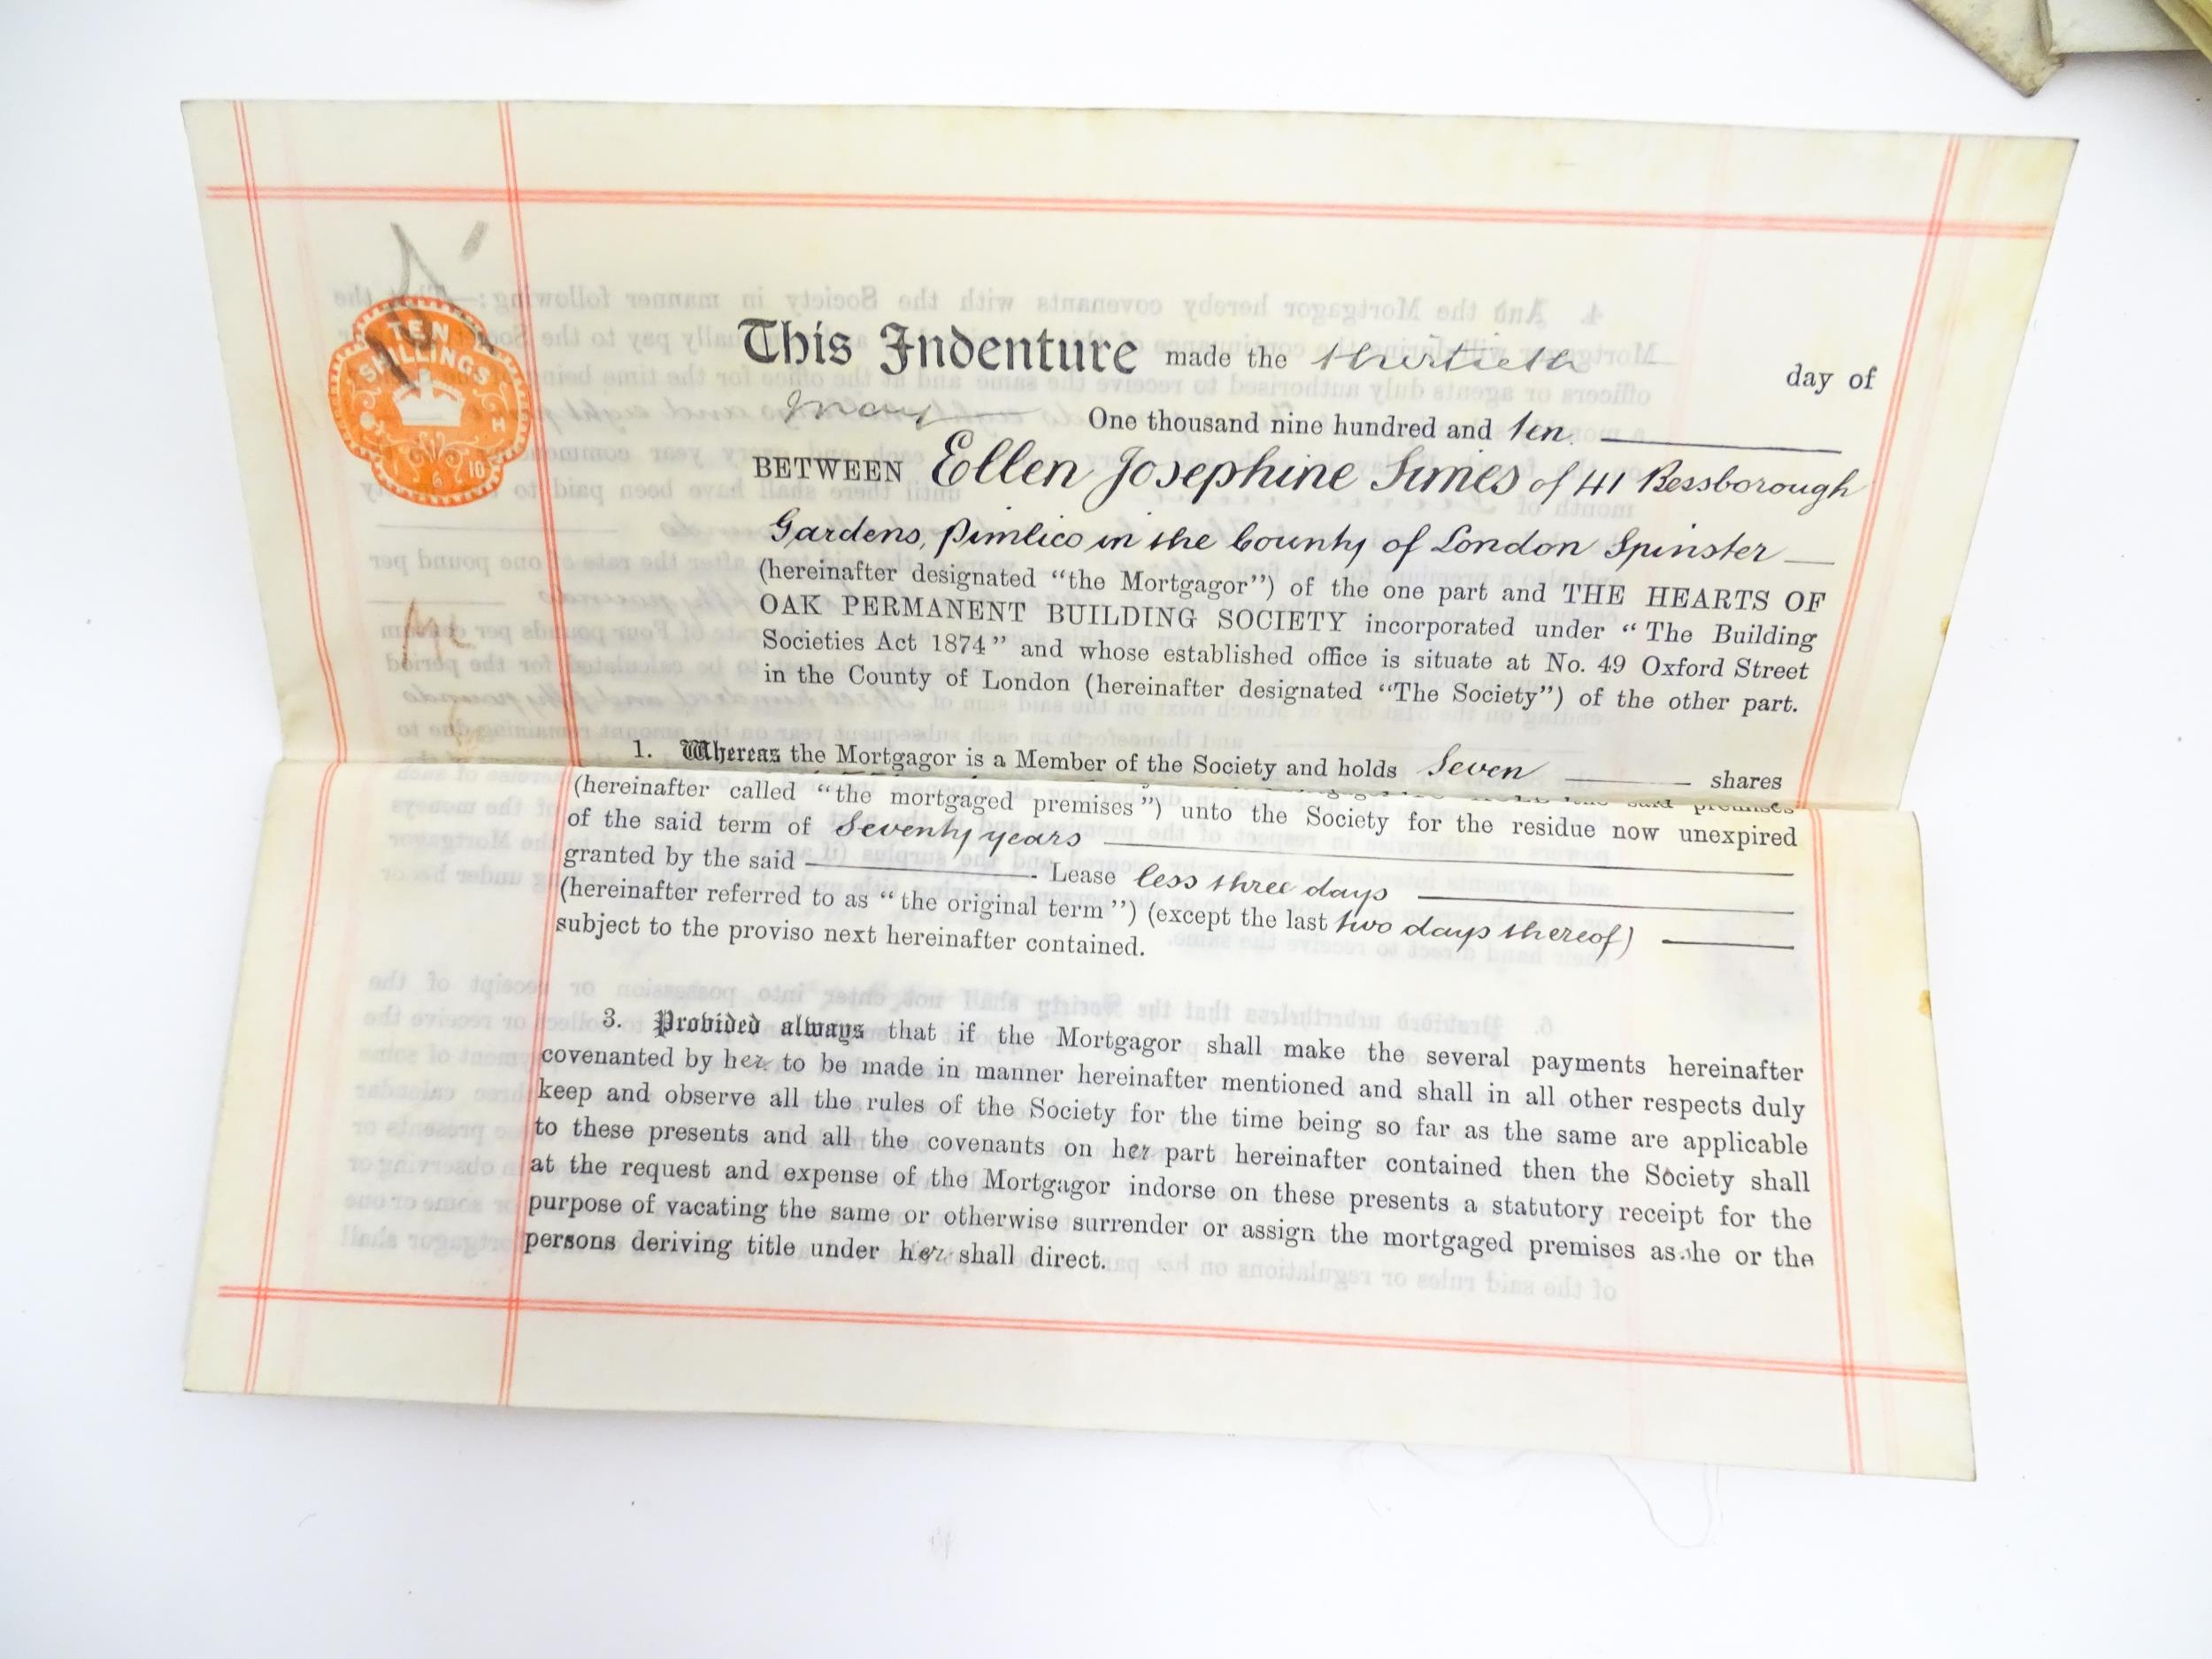 TEN
SHILLINGS
This Indenture made the thirtieth day of
May One thousand nine hundred and ten.
BETWEEN Ellen Josephine Simes of 41 Bessborough
Gardens, Pimlico in the County of London Spinster
(hereinafter designated “the Mortgagor”) of the one part and THE HEARTS OF
OAK PERMANENT BUILDING SOCIETY incorporated under “The Building
Societies Act 1874” and whose established office is situate at No. 49 Oxford Street
in the County of London (hereinafter designated “The Society”) of the other part.
1. Whereas the Mortgagor is a Member of the Society and holds Seven shares
said premises
(hereinafter called “the mortgaged premises”) unto the Society for the residue now unexpired
of the said term of Seventy years
granted by the said Lease less three days
(hereinafter referred to as “the original term”) (except the last two days thereof)
subject to the proviso next hereinafter contained.
3. Provided always that if the Mortgagor shall make the several payments hereinafter
covenanted by her to be made in manner hereinafter mentioned and shall in all other respects duly
keep and observe all the rules of the Society for the time being so far as the same are applicable
to these presents and all the covenants on her part hereinafter contained then the Society shall
at the request and expense of the Mortgagor indorse on these presents a statutory receipt for the
purpose of vacating the same or otherwise surrender or assign the mortgaged premises as she or the
persons deriving title under her shall direct.